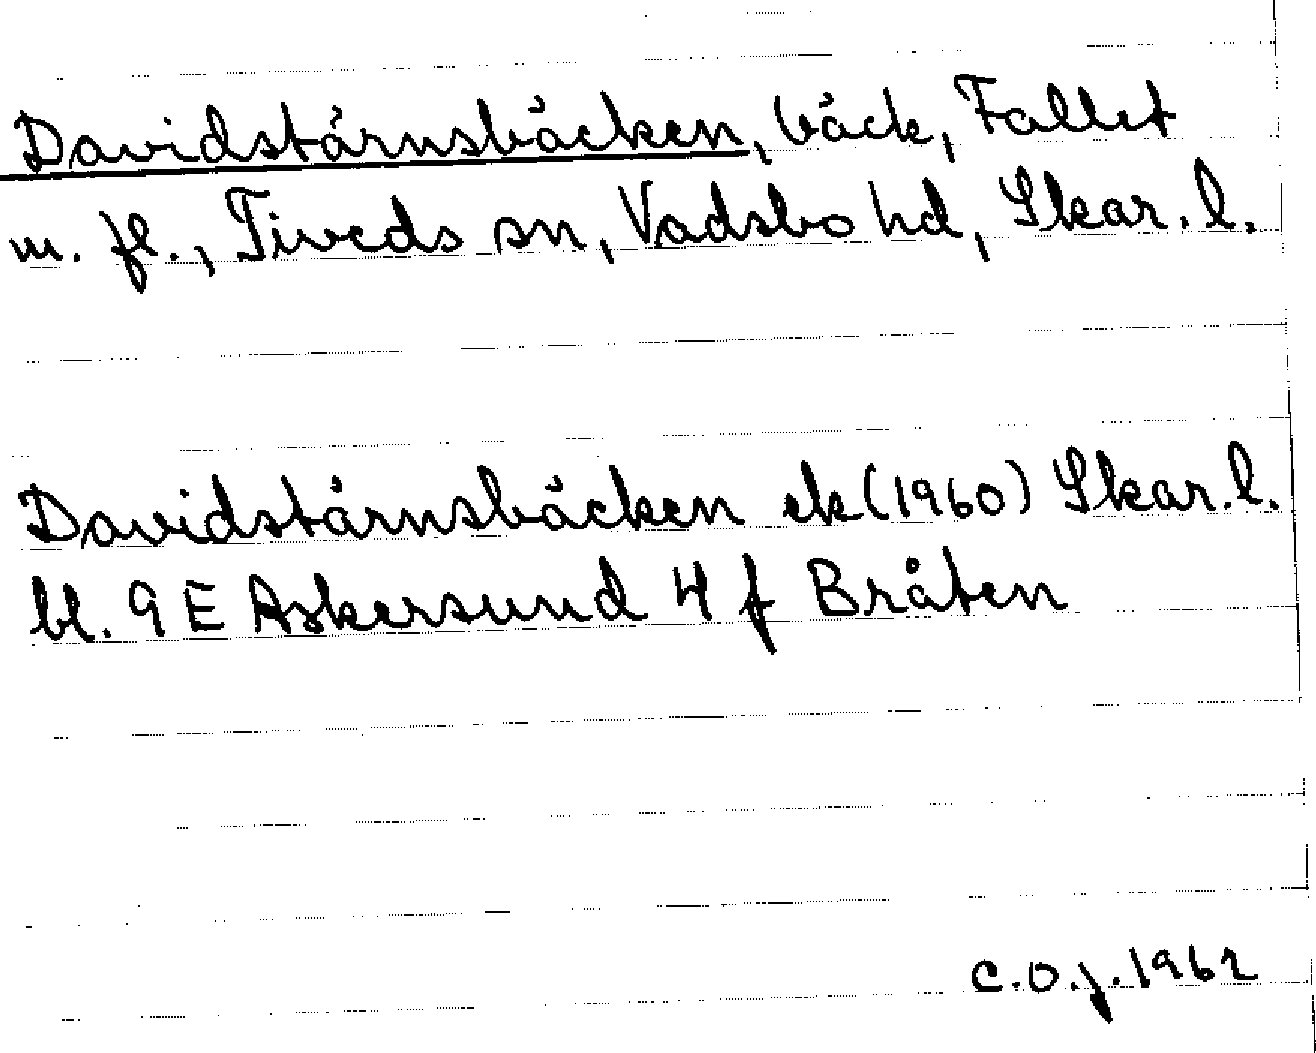 Davidstärnsbäcken, bäck, Fallet
m. fl., Tiveds sn, Vadsbo hd, Skar. l.
Davidstärnsbäcken ek (1960) Skar. l.
bl. 9 E Askersund 4 f Bråten
C.O.J. 1962